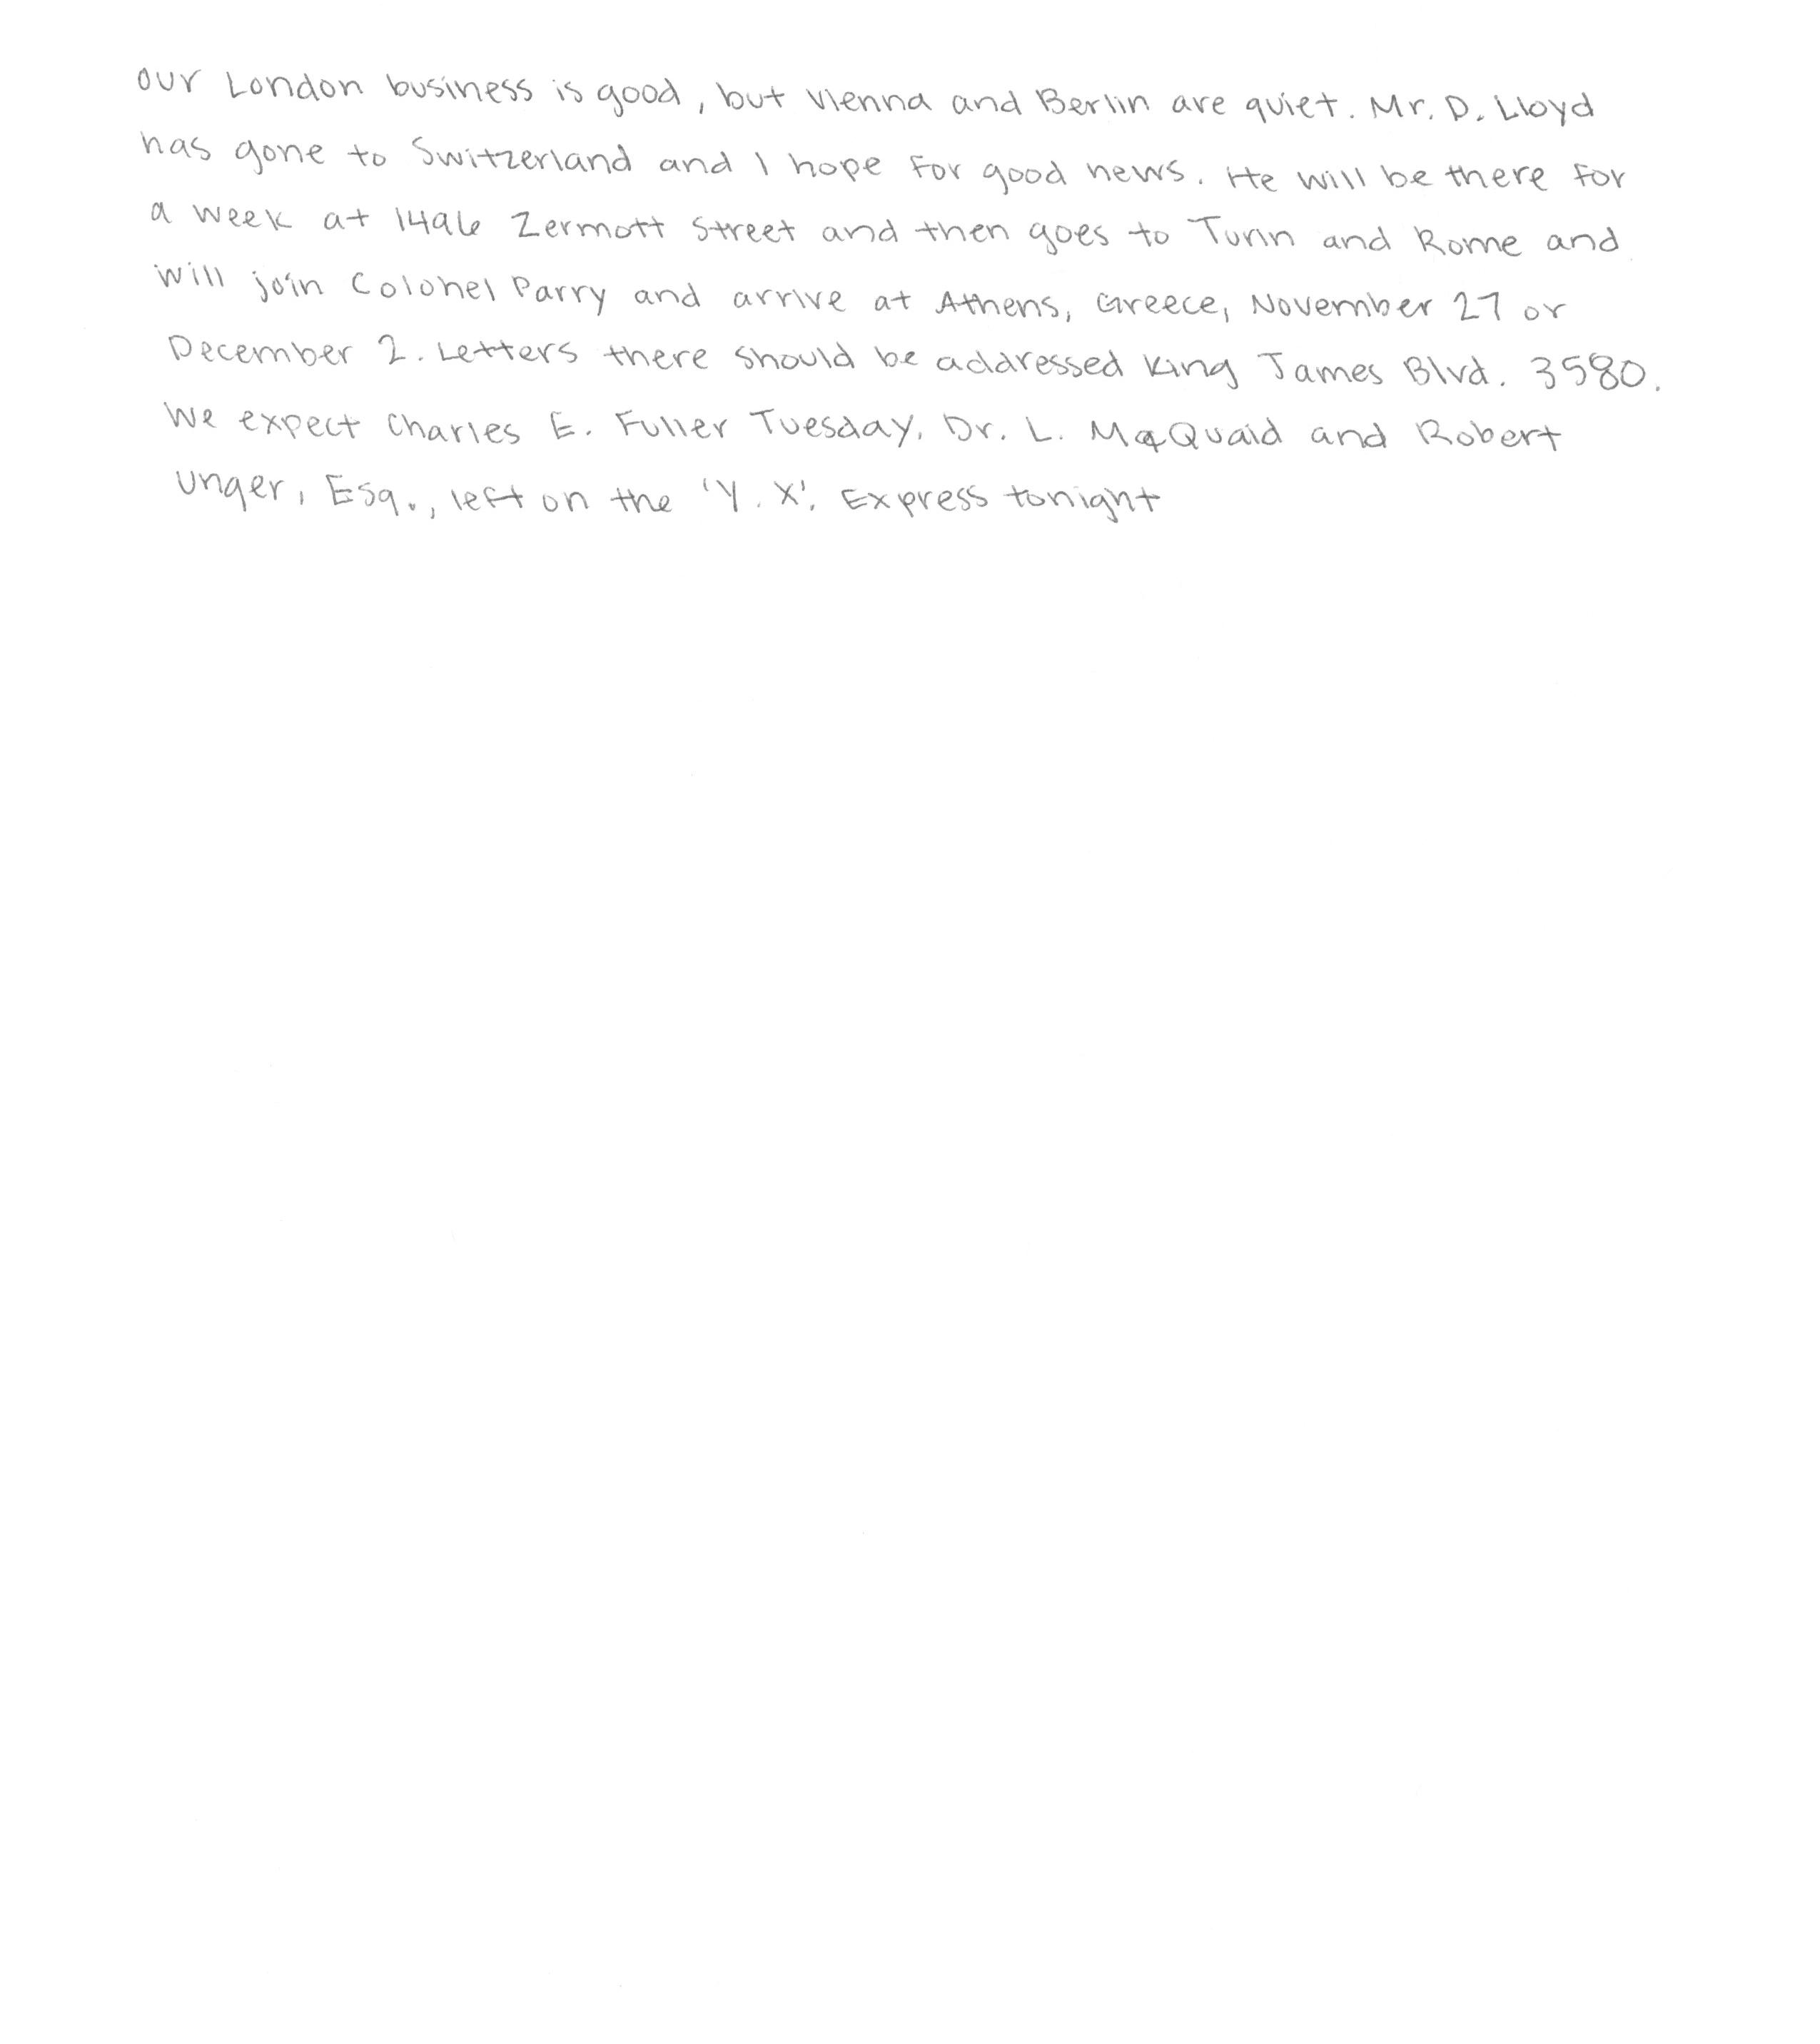 our London business is good, but Vienna and Berlin are quiet. Mr. D. Lloyd
has gone to Switzerland and I hope for good news. He will be there for
a week at 1496 Zermott Street and then goes to Turin and Rome and
will join Colonel Parry and arrive at Athens, Greece, November 27 or
December 2. Letters there should be addressed King James Blvd. 3580.
We expect Charles E. Fuller Tuesday. Dr. L. McQuaid and Robert
Unger, Esq., left on the 'Y. X'. Express tonight